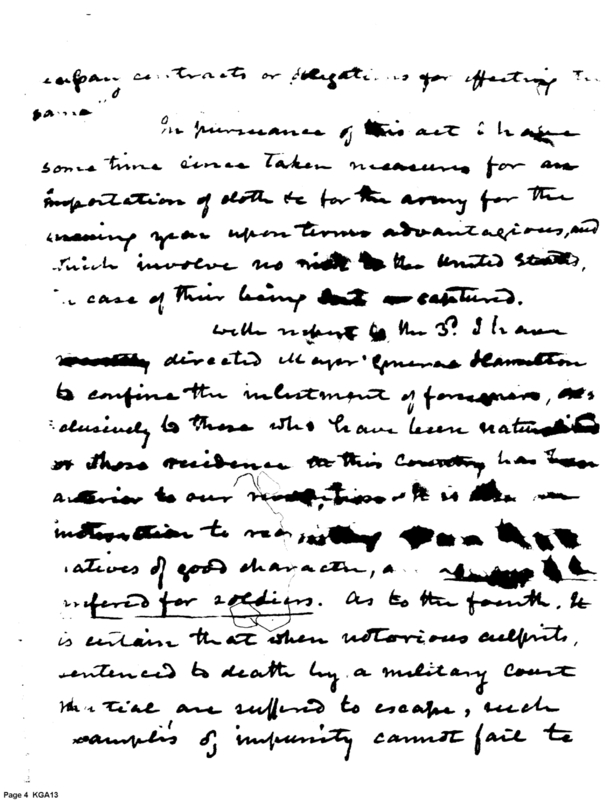 contracts or obligations for effecting the
same"
In pursuance of this act I have
some time since taken measures for an
importation of cloth &c for the army for the
ensuing year upon terms advantagious, and
which involve no risk to the United States,
in case of their being lost or captured.
With respect to the 3d. I have
directed Major General Hamilton
to confine the inlistment of foreigners, ex
clusively to those who have been naturalized
or whose residence in this Country has been
anterior to our It is
instruction to
natives of good character, a
preferred for soldiers. As to the fourth. It
is certain that when notorious culprits,
sentenced to death by a military Court
Martial are suffered to escape, such
examples of impunity cannot fail to
Page 4 KGA13